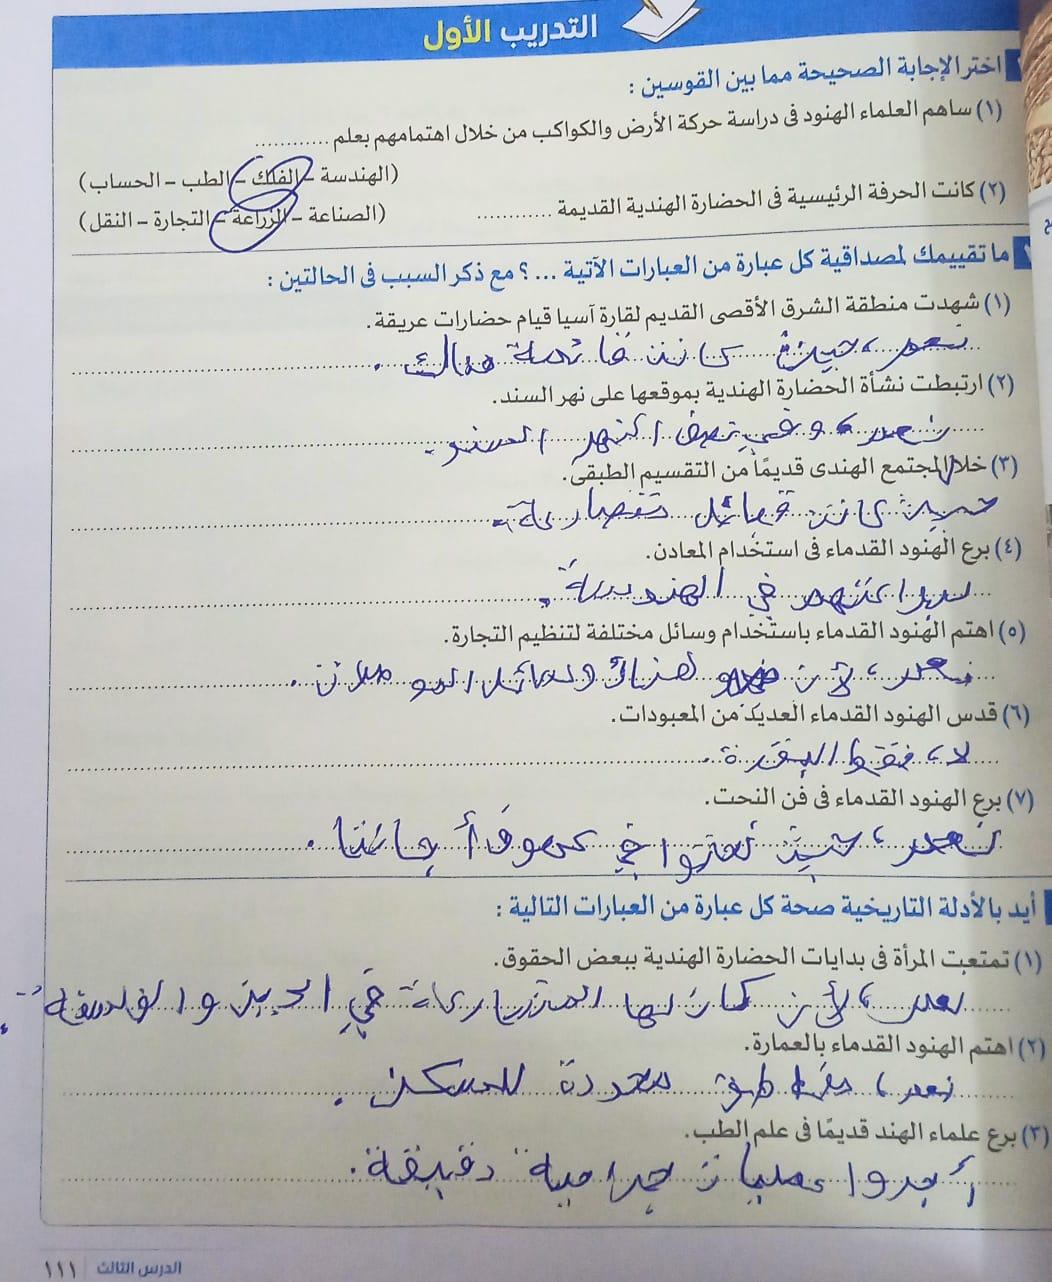 التدريب الأول
اختر الإجابة الصحيحة مما بين القوسين :
(١) ساهم العلماء الهنود فى دراسة حركة الأرض والكواكب من خلال اهتمامهم بعلم ............
(الهندسة – الفلك – الطب – الحساب)
(٢) كانت الحرفة الرئيسية فى الحضارة الهندية القديمة ............
(الصناعة – الزراعة – التجارة – النقل)
ما تقييمك لمصداقية كل عبارة من العبارات الآتية ... ؟ مع ذكر السبب فى الحالتين :
(١) شهدت منطقة الشرق الأقصى القديم لقارة آسيا قيام حضارات عريقة.
نعم، حيث كانت قائمة هناك.
(٢) ارتبطت نشأة الحضارة الهندية بموقعها على نهر السند.
نعم، وفي النهر السند.
(٣) خلا المجتمع الهندى قديمًا من التقسيم الطبقى.
حيث كانت قبائل
(٤) برع الهنود القدماء فى استخدام المعادن.
في الهندسة.
(٥) اهتم الهنود القدماء باستخدام وسائل مختلفة لتنظيم التجارة.
نعم، لأن هناك وسائل
(٦) قدس الهنود القدماء العديد من المعبودات.
لا، فقط البقرة.
(٧) برع الهنود القدماء فى فن النحت.
نعم، حيث نحتوا في كهوف أجانتا.
أيد بالأدلة التاريخية صحة كل عبارة من العبارات التالية :
(١) تمتعبت المرأة فى بدايات الحضارة الهندية ببعض الحقوق.
نعم، لأن كان لها المشاركة في الدين والفلسفة.
(٢) اهتم الهنود القدماء بالعمارة.
نعم، للسكن.
(٣) برع علماء الهند قديمًا فى علم الطب.
أجروا عمليات جراحية دقيقة.
الدرس الثالث ١١١